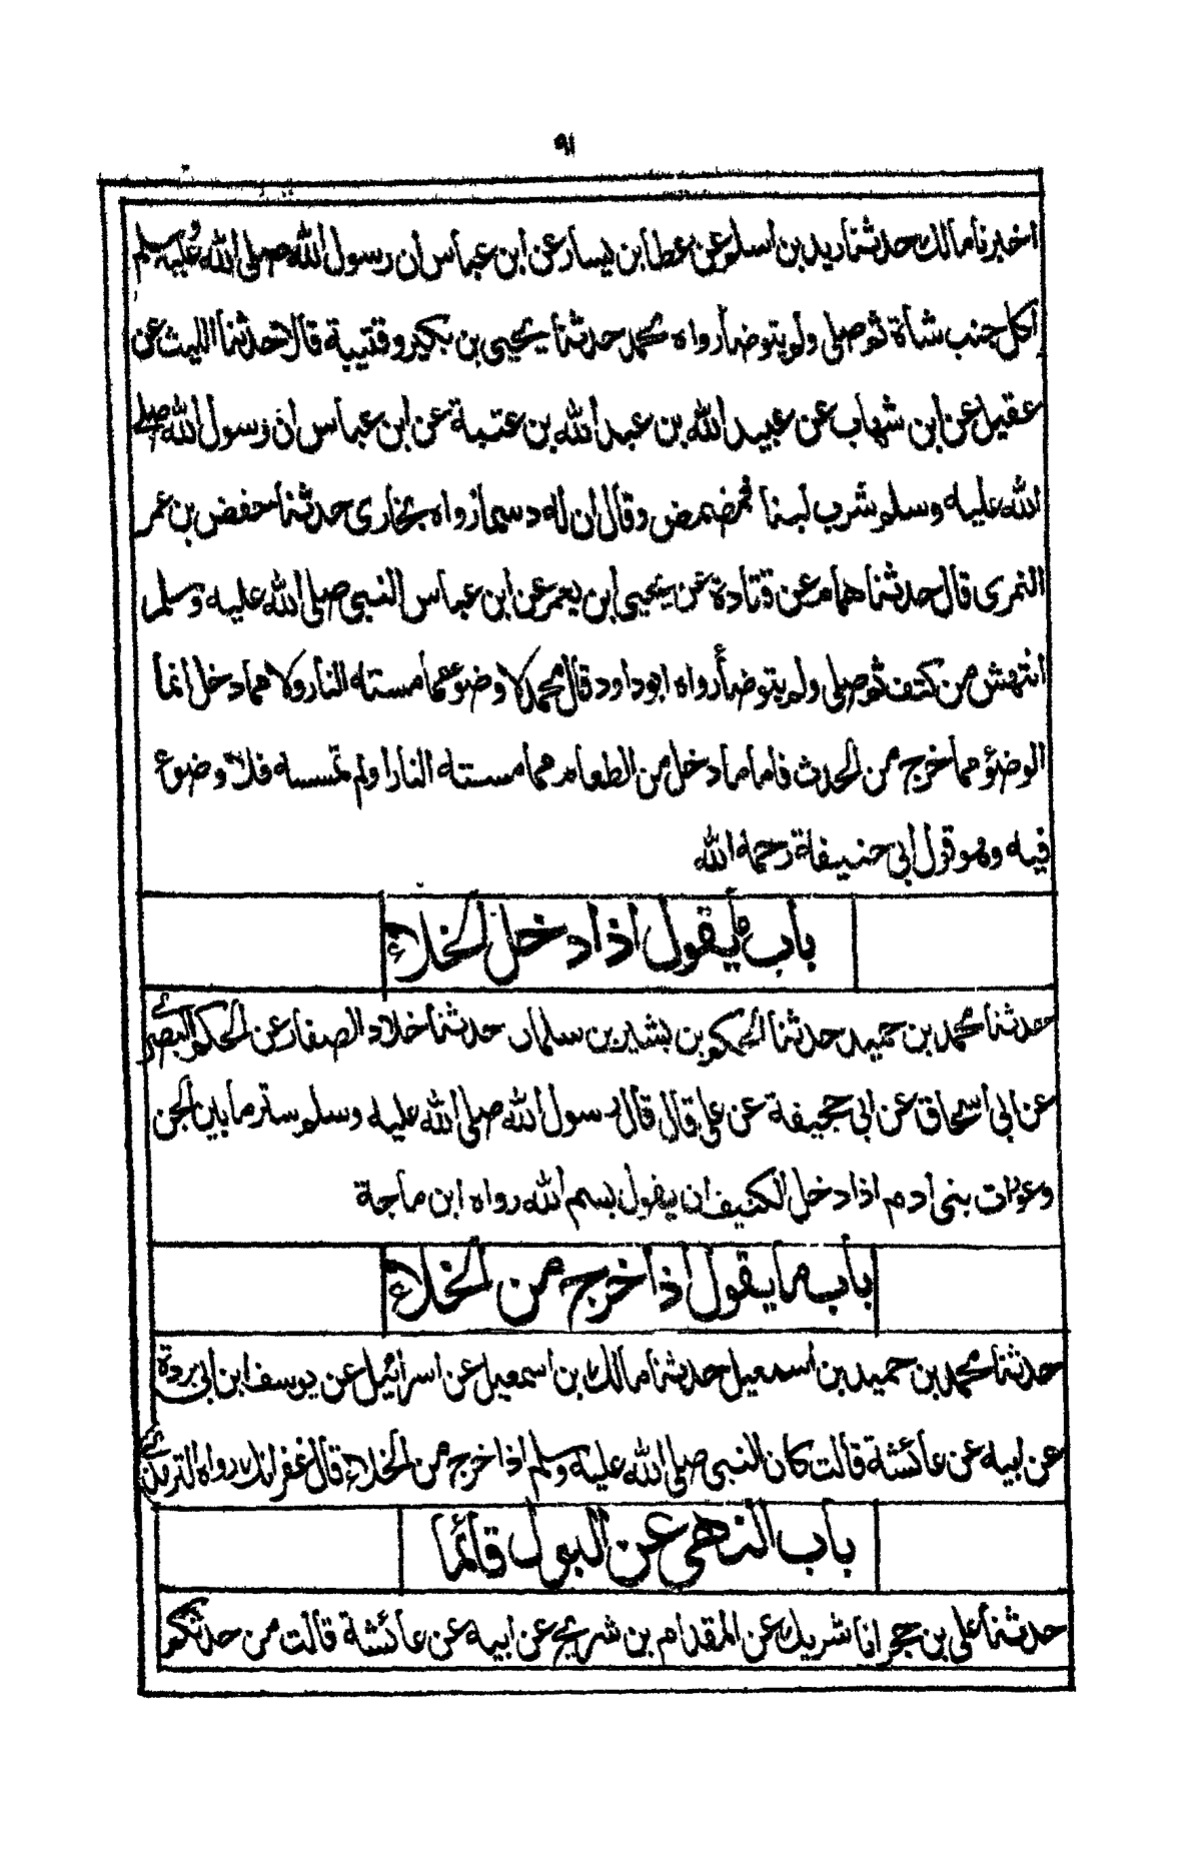 ٩١
اخبرنا مالك حدثنا زيد بن اسلم عن عطا بن يسار عن ابن عباس أن رسول الله صلى الله عليه وسلم
اكل جنب شاة ثم صلى ولم يتوضأ رواه محمد حدثنا يحيى بن بكير وقتيبة قالا حدثنا الليث عن
عقيل عن ابن شهاب عن عبيد الله بن عبد الله بن عتبة عن ابن عباس ان رسول الله صلى
الله عليه وسلم شرب لبنا فمضمض وقال ان له دسما رواه بخارى حدثنا حفض بن عمر
النمرى قال حدثنا همام عن قتادة عن يحيى ابن يعمر عن ابن عباس النبي صلى الله عليه وسلم
انتهش من كتف ثم صلى ولم يتوضأ رواه ابوداود قال محمد لا وضوء مما مسته النار ولا مما دخل انما
الوضؤ مما خرج من الحدث فاما ما دخل من الطعام مما مسته النار اولم تمسسه فلا وضوء
فيه وهو قول ابى حنيفة رحمه الله
باب ما يقول اذا دخل الخلاء
حدثنا محمد بن حميد حدثنا الحكم بن بشير بن سلمان حدثنا خلاد الصفار عن الحكم البصرى
عن ابى اسحاق عن ابى جحيفة عن على قال قال رسول الله صلى الله عليه وسلم ستر ما بين الجن
وعورات بنى ادم اذا دخل الكنيف ان يقول بسم الله رواه ابن ماجة
باب ما يقول اذا خرج من الخلاء
حدثنا محمد بن حميد بن اسمعيل حدثنا مالك بن اسمعيل عن اسرائيل عن يوسف ابن ابى بردة
عن ابيه عن عائشة قالت كان النبى صلى الله عليه وسلم اذا خرج من الخلاء قال غفرانك رواه الترمذى
باب النهى عن البول قائما
حدثنا على بن حجر انا شريك عن المقدام بن شريح عن ابيه عن عائشة قالت من حدثكم